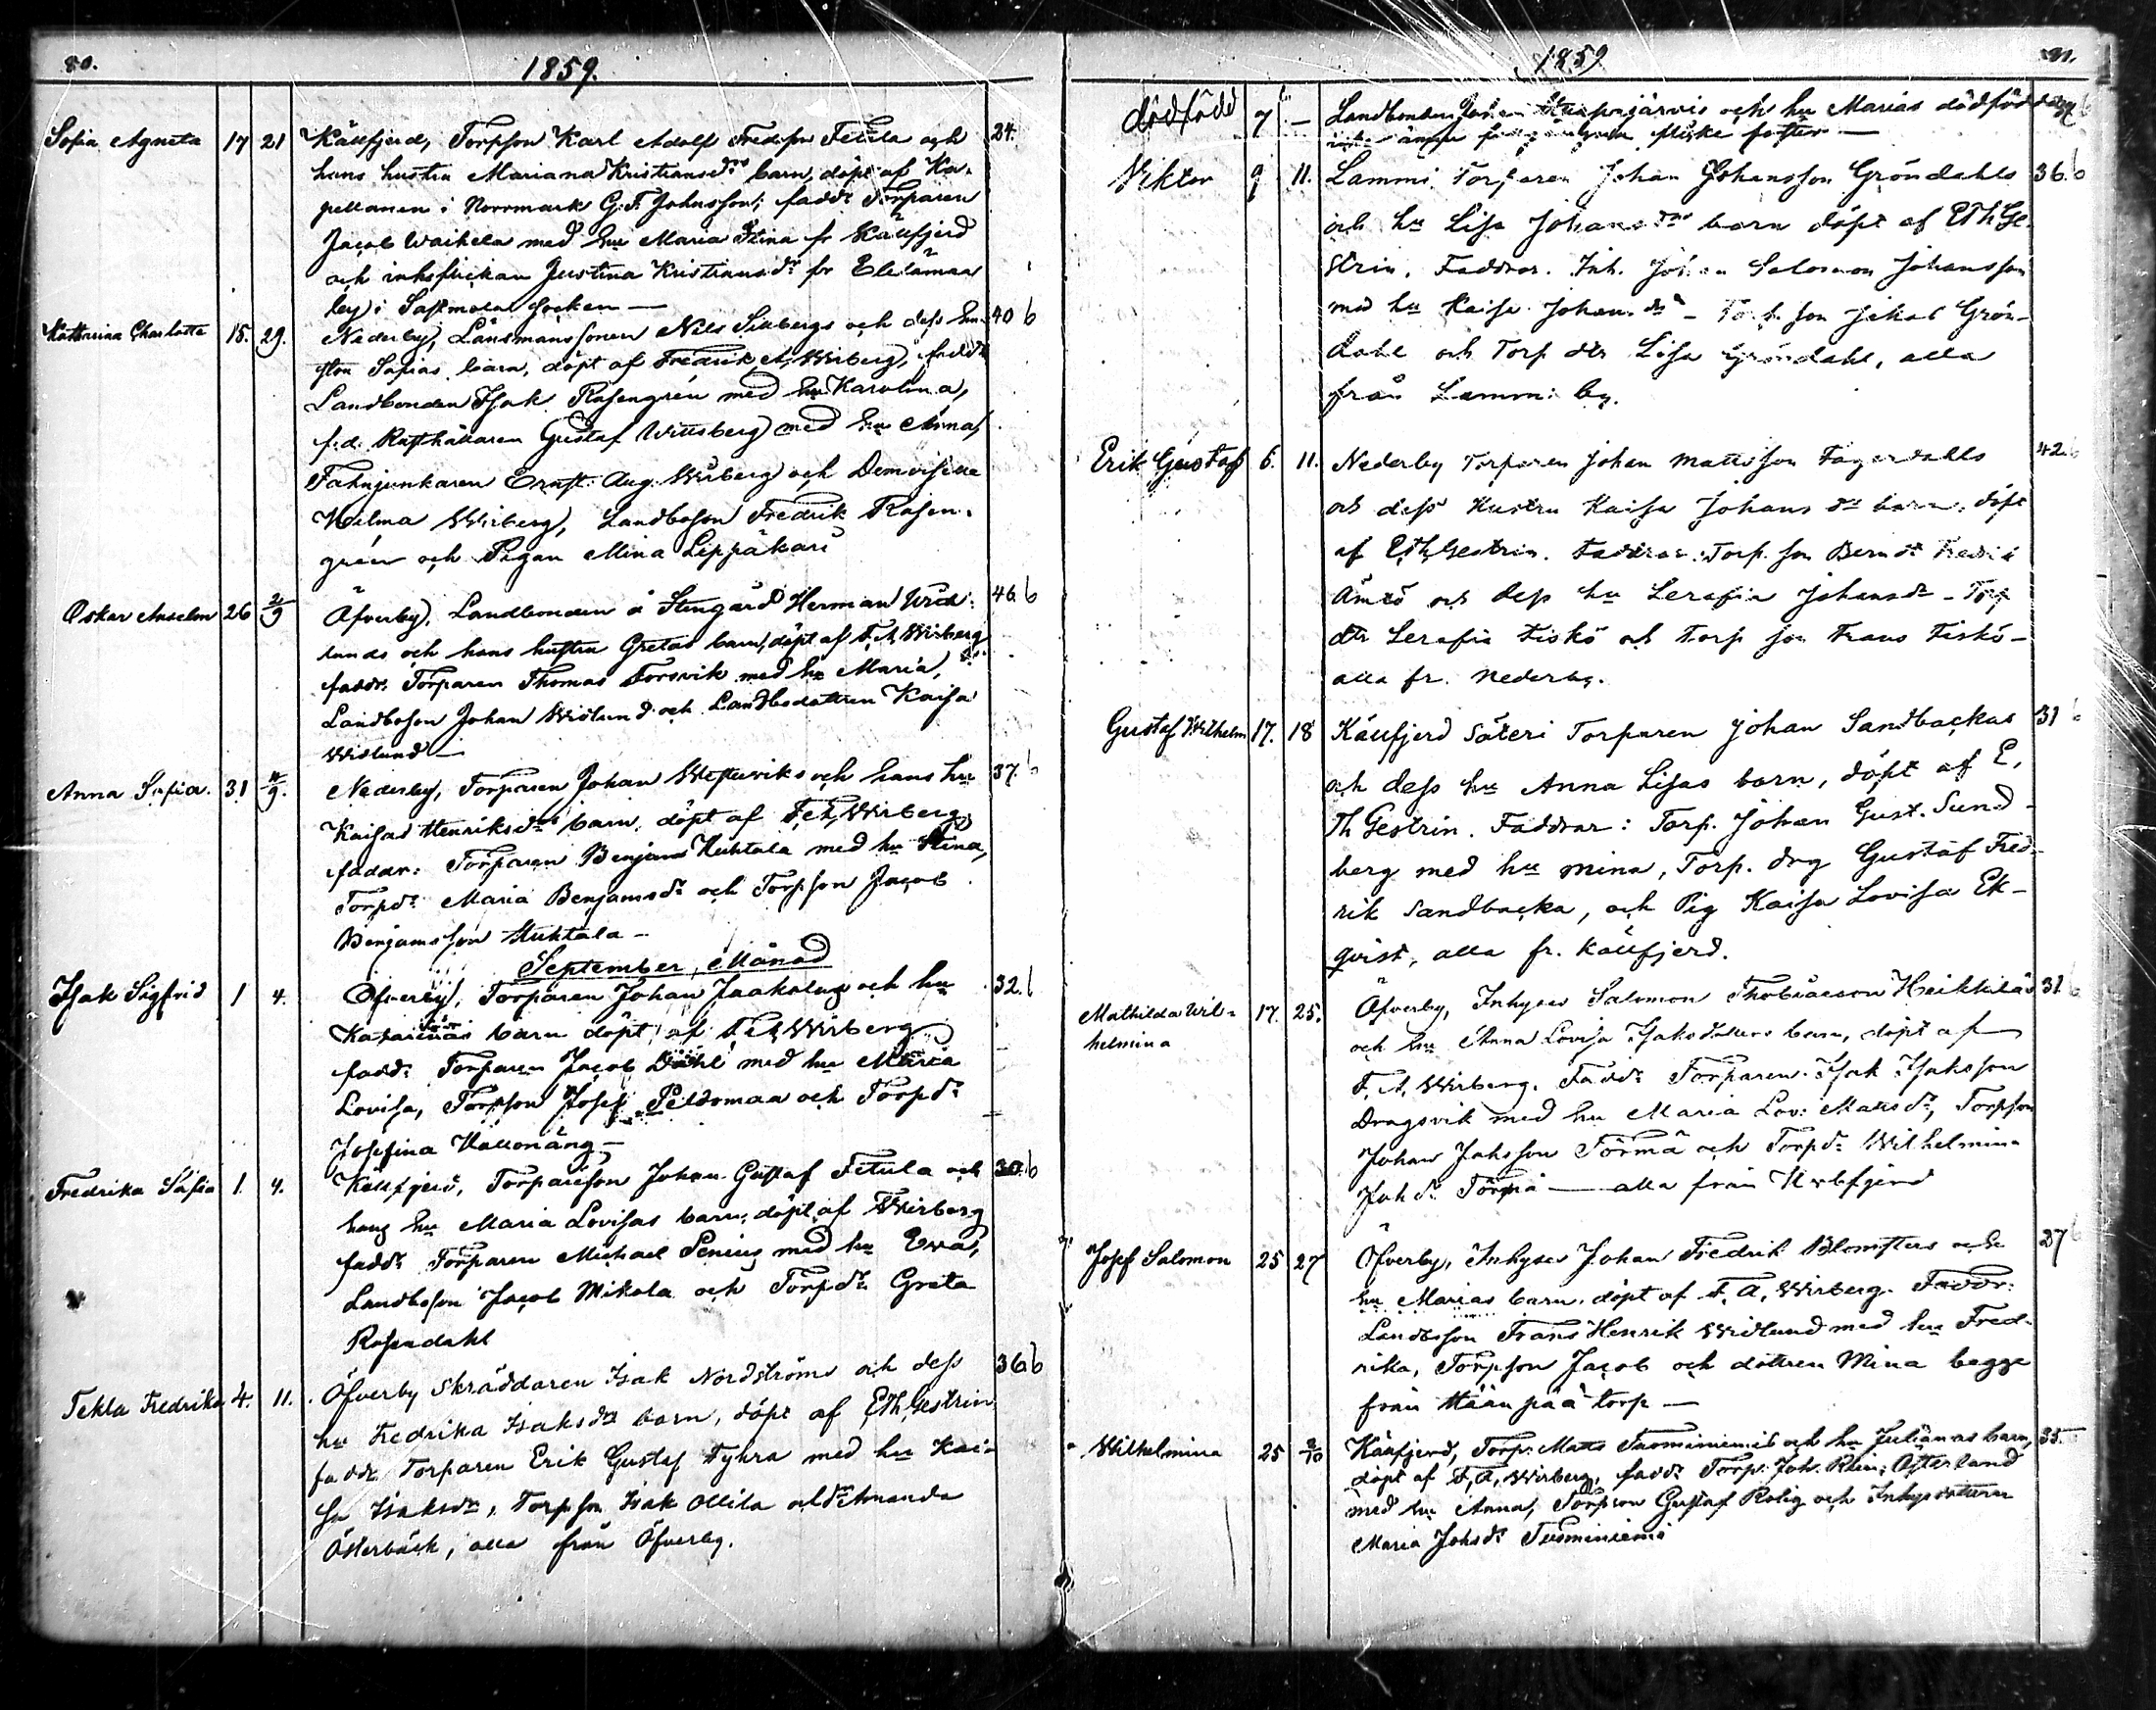 80.
1859.
Sofia Agneta 17 21 Källfjerd, Torpson Karl Adolf Fredsson Fetula och 24.
hans hustru Mariana Kristiansdrs barn, döpt af Ka-
pellanen i Norrmark G. F. Johnsson; faddr Torparen
Jacob Waikela med hu Maria Stina fr Källfjerd
och inhsflickan Justina Kristiansdr fr
by i Sastmola socken —
Katharina Charlotta 15. 29. Nederby, Länsmanssonen Nils Sellbergs och dess hu- 40 b
stru Sofias barn, döpt af Fredrik A. Wirberg, faddr
Landbonden Isak Rosengrén med hu Karolina,
f.d. Rusthållaren Gustaf Wittsberg med hu Anna,
Fahnjunkaren Ernst Aug. Wirberg och Demoiselle
Hilma Wirberg, Landboson Fredrik Rosen-
grén och Pigan Mina Leppäkari
Oskar Anselm 26 2/9 Öfverby, Landbonden å Stengård Herman Wid- 46 b
lunds och hans hustru Gretas barn, döpt af F. A. Wirberg
faddr. Torparen Thomas Torsvik med hu Maria,
Landboson Johan Widlund och Landbodottren Kaisa
Widlund —
Anna Sofia. 31 4/9. Nederby, Torparen Johan Westerviks och hans hu 37. b
Kaisas Henriksdrs barn, döpt af F. A. Wirberg
faddr: Torparen Benjam Huhtala med hu Stina,
Torpdr Maria Benjamsdr och Torpson Jacob
Benjamsson Huhtala —
September Månad
Isak Sigfrid 1 4. Öfverby, Torparen Johan Jaakolas och hu 32. b
Katarinas barn döpt af F. A. Wirberg
faddr Torparen Jacob Dahl med hu Maria
Lovisa, Torpson Josef Peldomaa och Torpdr
Josefina Hallonäng —
Fredrika Sofia 1. 4. Källfjerd, Torpareson Johan Gustaf Fetula och 30. b
hans hu Maria Lovisas barn, döpt af Wirberg
faddr Torparen Michael Penius med hu Eva,
Landboson Jacob Mikola och Torpdr Greta
Rosendahl
Tekla Fredrika 4. 11. Öfverby Skräddaren Isak Nordströms och dess 36 b
hu Fredrika Isaksdrs barn, döpt af E Th Gestrin
faddr. Torparen Erik Gustaf Fyhra med hu Kai-
sa Isaksdr, Torpson Isak Ollila och Amanda
Österback, alla från Öfverby.
1859
81.
dödfödd 7 — Landbonden och hu Marias dödfödda
Viktor 9 11. Lammi Torparen Johan Johansson Gröndahls 36. b
och hu Lisa Johansdrs barn döpt af E Th Ge-
strin. Faddrar. Inh. Johan Salomon Johansson
med hu Kaisa Johansdr — Torp. son Jakob Grön-
dahl och Torp dtr Lisa Gröndahl, alla
från Lammi by.
Erik Gustaf 6. 11. Nederby Torparen Johan Mattsson Fagerdahls 42. b
och dess Hustru Kaisa Johans dr barn, döpt
af E Th Gestrin. Faddrar: Torp. son Bernd Fredrik
Ämtö och dess hu Serafia Johansdr — Torp
dtr Serafia Fiskö och Torp son Frans Fiskö —
alla fr. Nederby.
Gustaf Wilhelm 17. 18 Källfjerd Säteri Torparen Johan Sandbackas 31 b
och dess hu Anna Lisas barn, döpt af E.
Th Gestrin. Faddrar: Torp. Johan Gust. Sund-
berg med hu Mina, Torp. drg Gustaf Fred-
rik Sandbacka, och Pig Kaisa Lovisa Ek-
qvist, alla fr. Källfjerd.
Mathilda Wil- 17. 25. Öfverby, Inhyses Salomon Thobiasson Heikkiläs 31 b
helmina och hu Anna Lovisa Isaksdotters barn, döpt af
F. A. Wirberg. Faddr Torparen Isak Isaksson
Dragsvik med hu Maria Lov: Mattsdr, Torpson
Johan Jahsson Törmä och Torpdr Wilhelmina
Jahdr Törmä — alla från
Josef Salomon 25 27 Öfverby, Inhyses Johan Fredrik Blomsters och 27 b
hu Marias barn, döpt af F. A. Wirberg. Faddr:
Landboson Frans Henrik Widlund med hu Fred-
rika, Torpson Jacob och dottren Mina begge
från torp —
Wilhelmina 25 2/10 Källfjerd, Torp. Matts Tuominiemis och hu Julianas barn, 35.
döpt af F. A. Wirberg, faddr Torp. Joh. Österland
med hu Anna, Torpson Gustaf Rolig och Inhysdottren
Maria Johsdr Tuominiemi